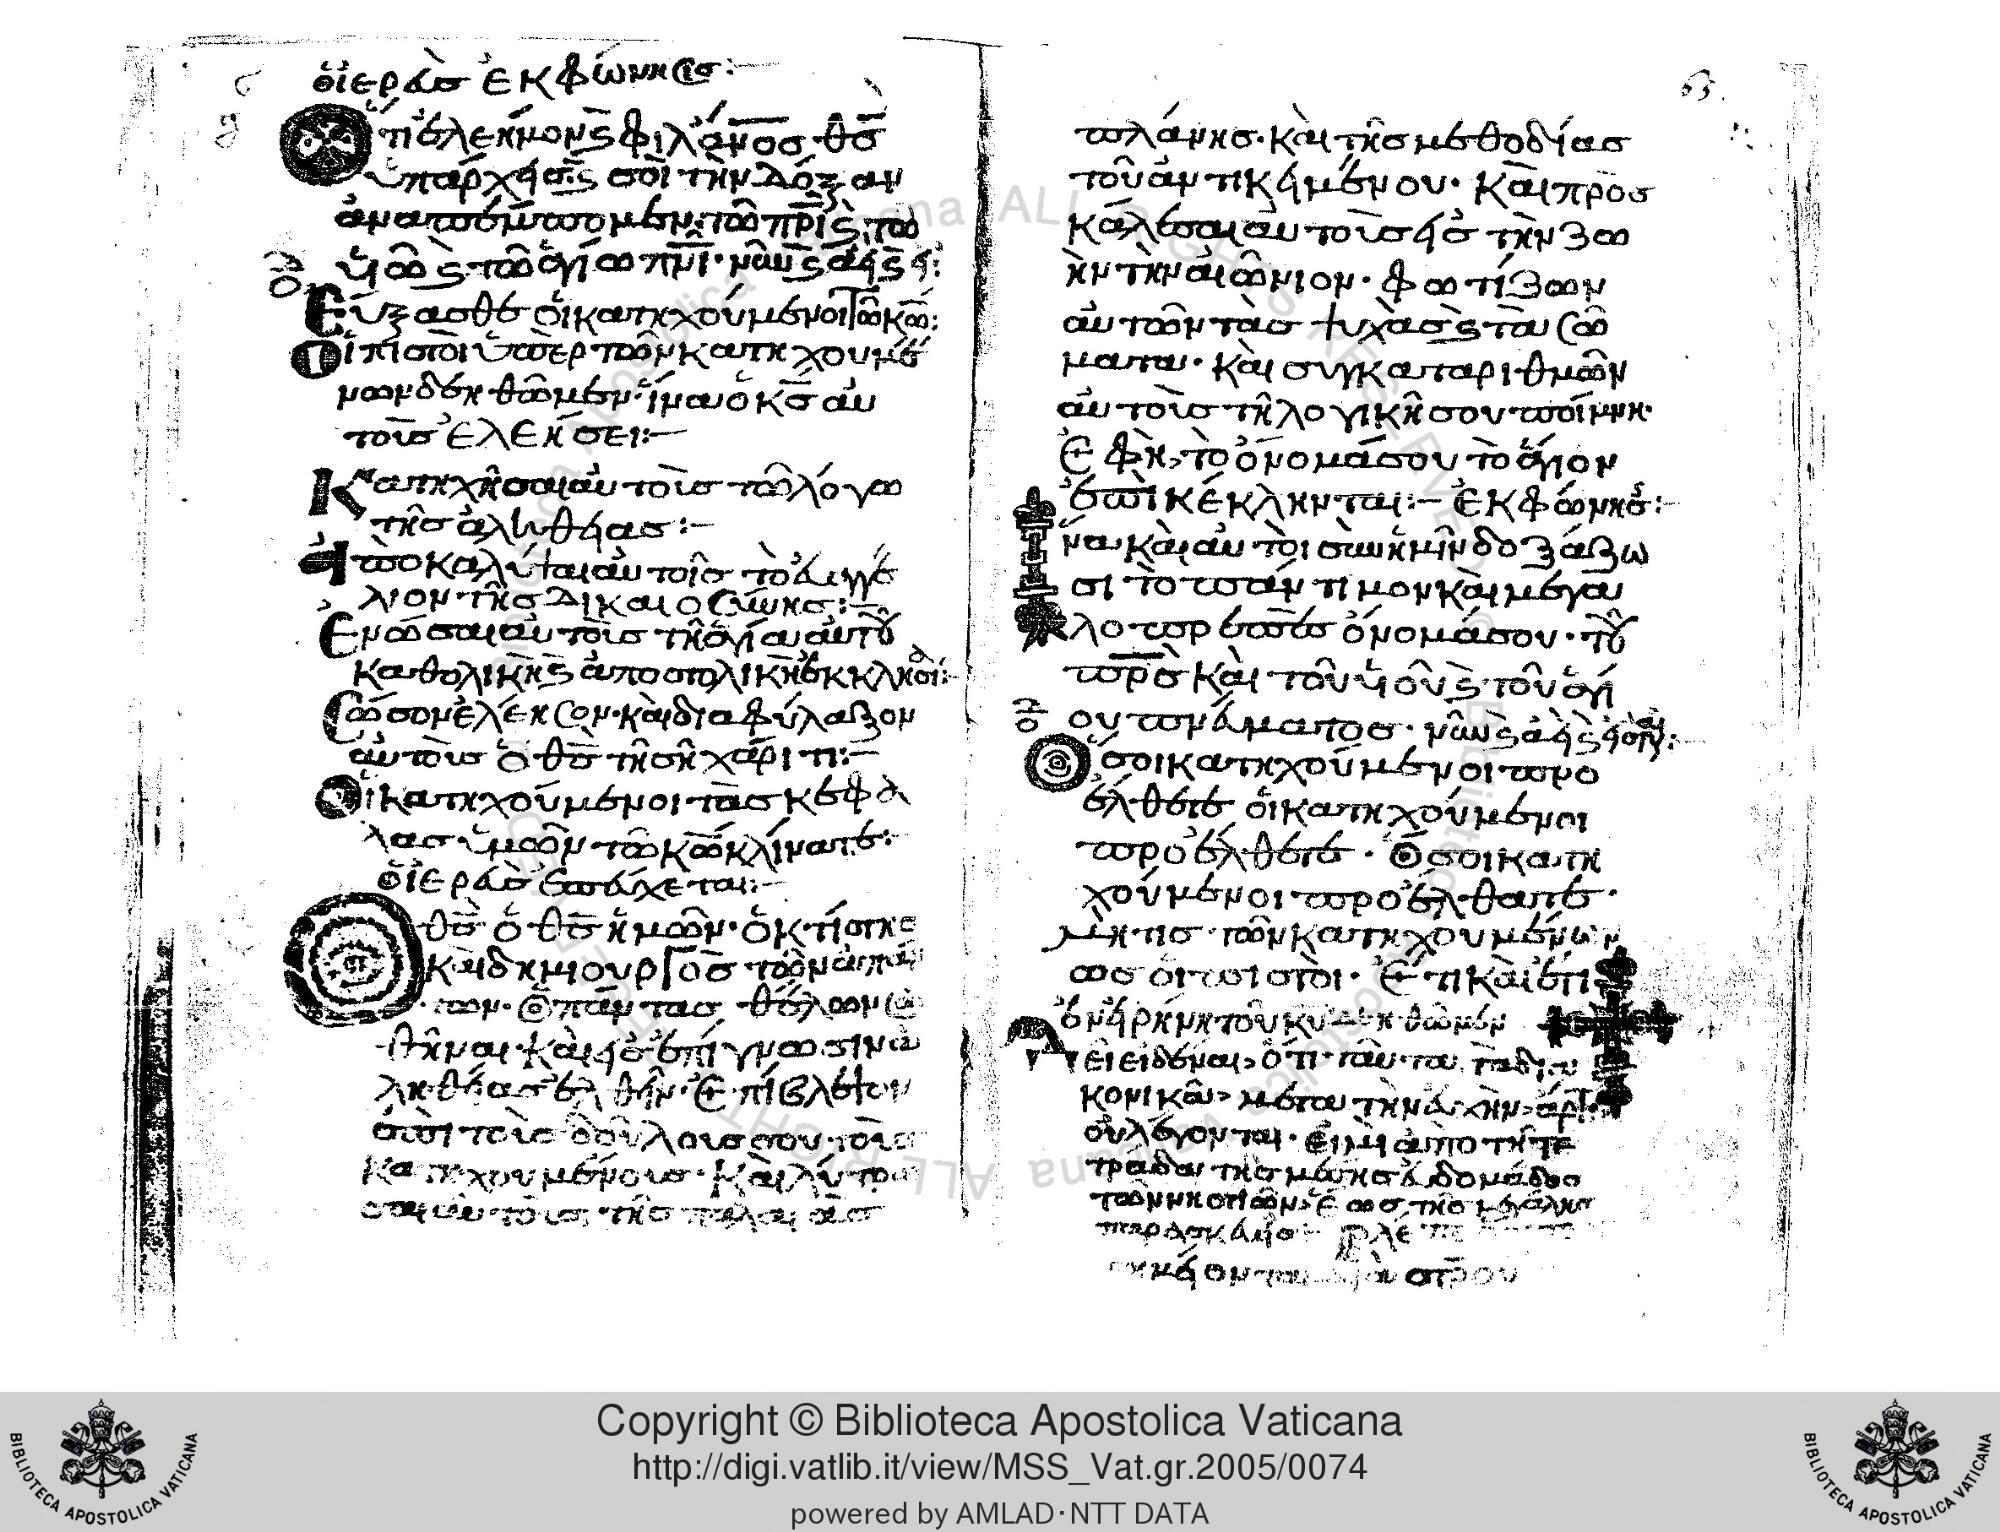 ὁ ἱερεὺς ἐκφώνησις:
Ὅτι ἐλεήμων ϗ φιλάνος θς
ὑπάρχεις ϗ σοὶ τὴν δόξαν
ἀναπέμπομεν τῶ πρὶ ϗ τῶ
υἱῶ ϗ τῶ ἁγίω πνι νῦν ϗ ἀεὶ ϗ εἰ:
Εὔξασθε οἱ κατηχούμενοι τῶ κῶ:
Οἱ πιστοὶ ὑπὲρ τῶν κατηχουμέ
νων δεηθῶμεν ἵνα ὁ κς αὐ
τοὺς ἐλεήσει:
Κατηχῆσαι αὐτοὺς τῶ λόγω
τῆς ἀληθείας:
ἀποκαλύψαι αὐτοῖς τὸ εὐαγγέ
λιον τῆς δικαιοσύνης:
Ἑνώσαι αὐτοὺς τῆ ἁγία αὐτοῦ
καθολικῆ ϗ ἀποστολικῆ ἐκκλησί:
Σῶσον ἐλέησον καὶ διαφύλαξον
αὐτοὺς ὁ θς τῆ σῆ χάριτι:
Οἱ κατηχούμενοι τὰς κεφα
λας ὑμῶν τῶ κῶ κλίνατε:
ὁ ἱερεὺς ἐπεύχεται:
Ὁ θς ὁ θς ἡμῶν ὁ κτίστης
καὶ δημιουργὸς τῶν ἁπάν
των ὁ πάντας θέλων σω
θῆναι καὶ εἰς ἐπίγνωσιν ἀ
ληθείας ἐλθεῖν ἐπίβλεψον
ἐπὶ τοὺς δούλους σου τοὺς
κατηχουμένους καὶ λύτρω
σαι αὐτοὺς τῆς παλαιᾶς
65
πλάνης καὶ τῆς μεθοδίας
τοῦ ἀντικειμένου καὶ προσ
κάλεσαι αὐτοὺς εἰς τὴν ζω
ὴν τὴν αἰώνιον φωτίζων
αὐτῶν τὰς ψυχὰς ϗ τὰ σώ
ματα καὶ συγκαταριθμῶν
αὐτοὺς τῆ λογικῆ σου ποίμνη
ἐφ ἣ τὸ ὄνομά σου τὸ ἅγιον
ἐπικέκληνται: ἐκφώνησ:
ἵνα καὶ αὐτοὶ σὺν ἡμῖν δοξάζω
σι τὸ πάντιμον καὶ μεγα
λοπρεπὲς ὄνομά σου τοῦ
πρς καὶ τοῦ υἱοῦ ϗ τοῦ ἁγί
ου πνεύματος νῦν ϗ ἀεὶ ϗ εἰς τοὺς
Ὅσοι κατηχούμενοι προ
έλθετε οἱ κατηχούμενοι
προέλθετε ὅσοι κατη
χούμενοι προέλθατε
μή τις τῶν κατηχουμένων
ὅσοι πιστοί ἔτι καὶ ἔτι
ἐν εἰρήνη τοῦ κυ δεηθῶμεν
Δεῖ εἰδέναι ὅτι ταῦτα τὰ δια
κονικὰ μετὰ τὴν εὐχὴν ἄρτι
οὐ λέγονται εἰ μὴ ἀπὸ τῆ τε
τράδα τῆς μέσης ἑβδομάδος
τῶν νηστιῶν ἕως τῆς μεγάλης
παρασκευῆς
Copyright © Biblioteca Apostolica Vaticana
http://digi.vatlib.it/view/MSS_Vat.gr.2005/0074
powered by AMLAD·NTT DATA
BIBLIOTECA APOSTOLICA VATICANA
BIBLIOTECA APOSTOLICA VATICANA